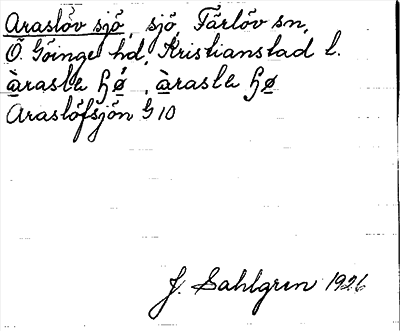 Araslöv sjö, sjö, Färlöv sn,
Ö. Göinge hd, Kristianstad l.
Araslöfsjön G 10
J. Sahlgren 1926